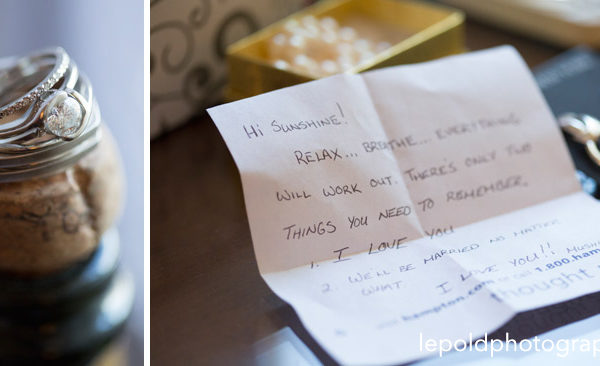 Hi SUNSHINE!
RELAX... BREATHE... EVERYTHING
WILL WORK OUT. THERE'S ONLY TWO
THINGS YOU NEED TO REMEMBER.
1. I LOVE YOU
2. WE'LL BE MARRIED NO MATTER
WHAT I LOVE YOU!!
hampton.com or call 1.800.ham
thought
lepoldphotograp